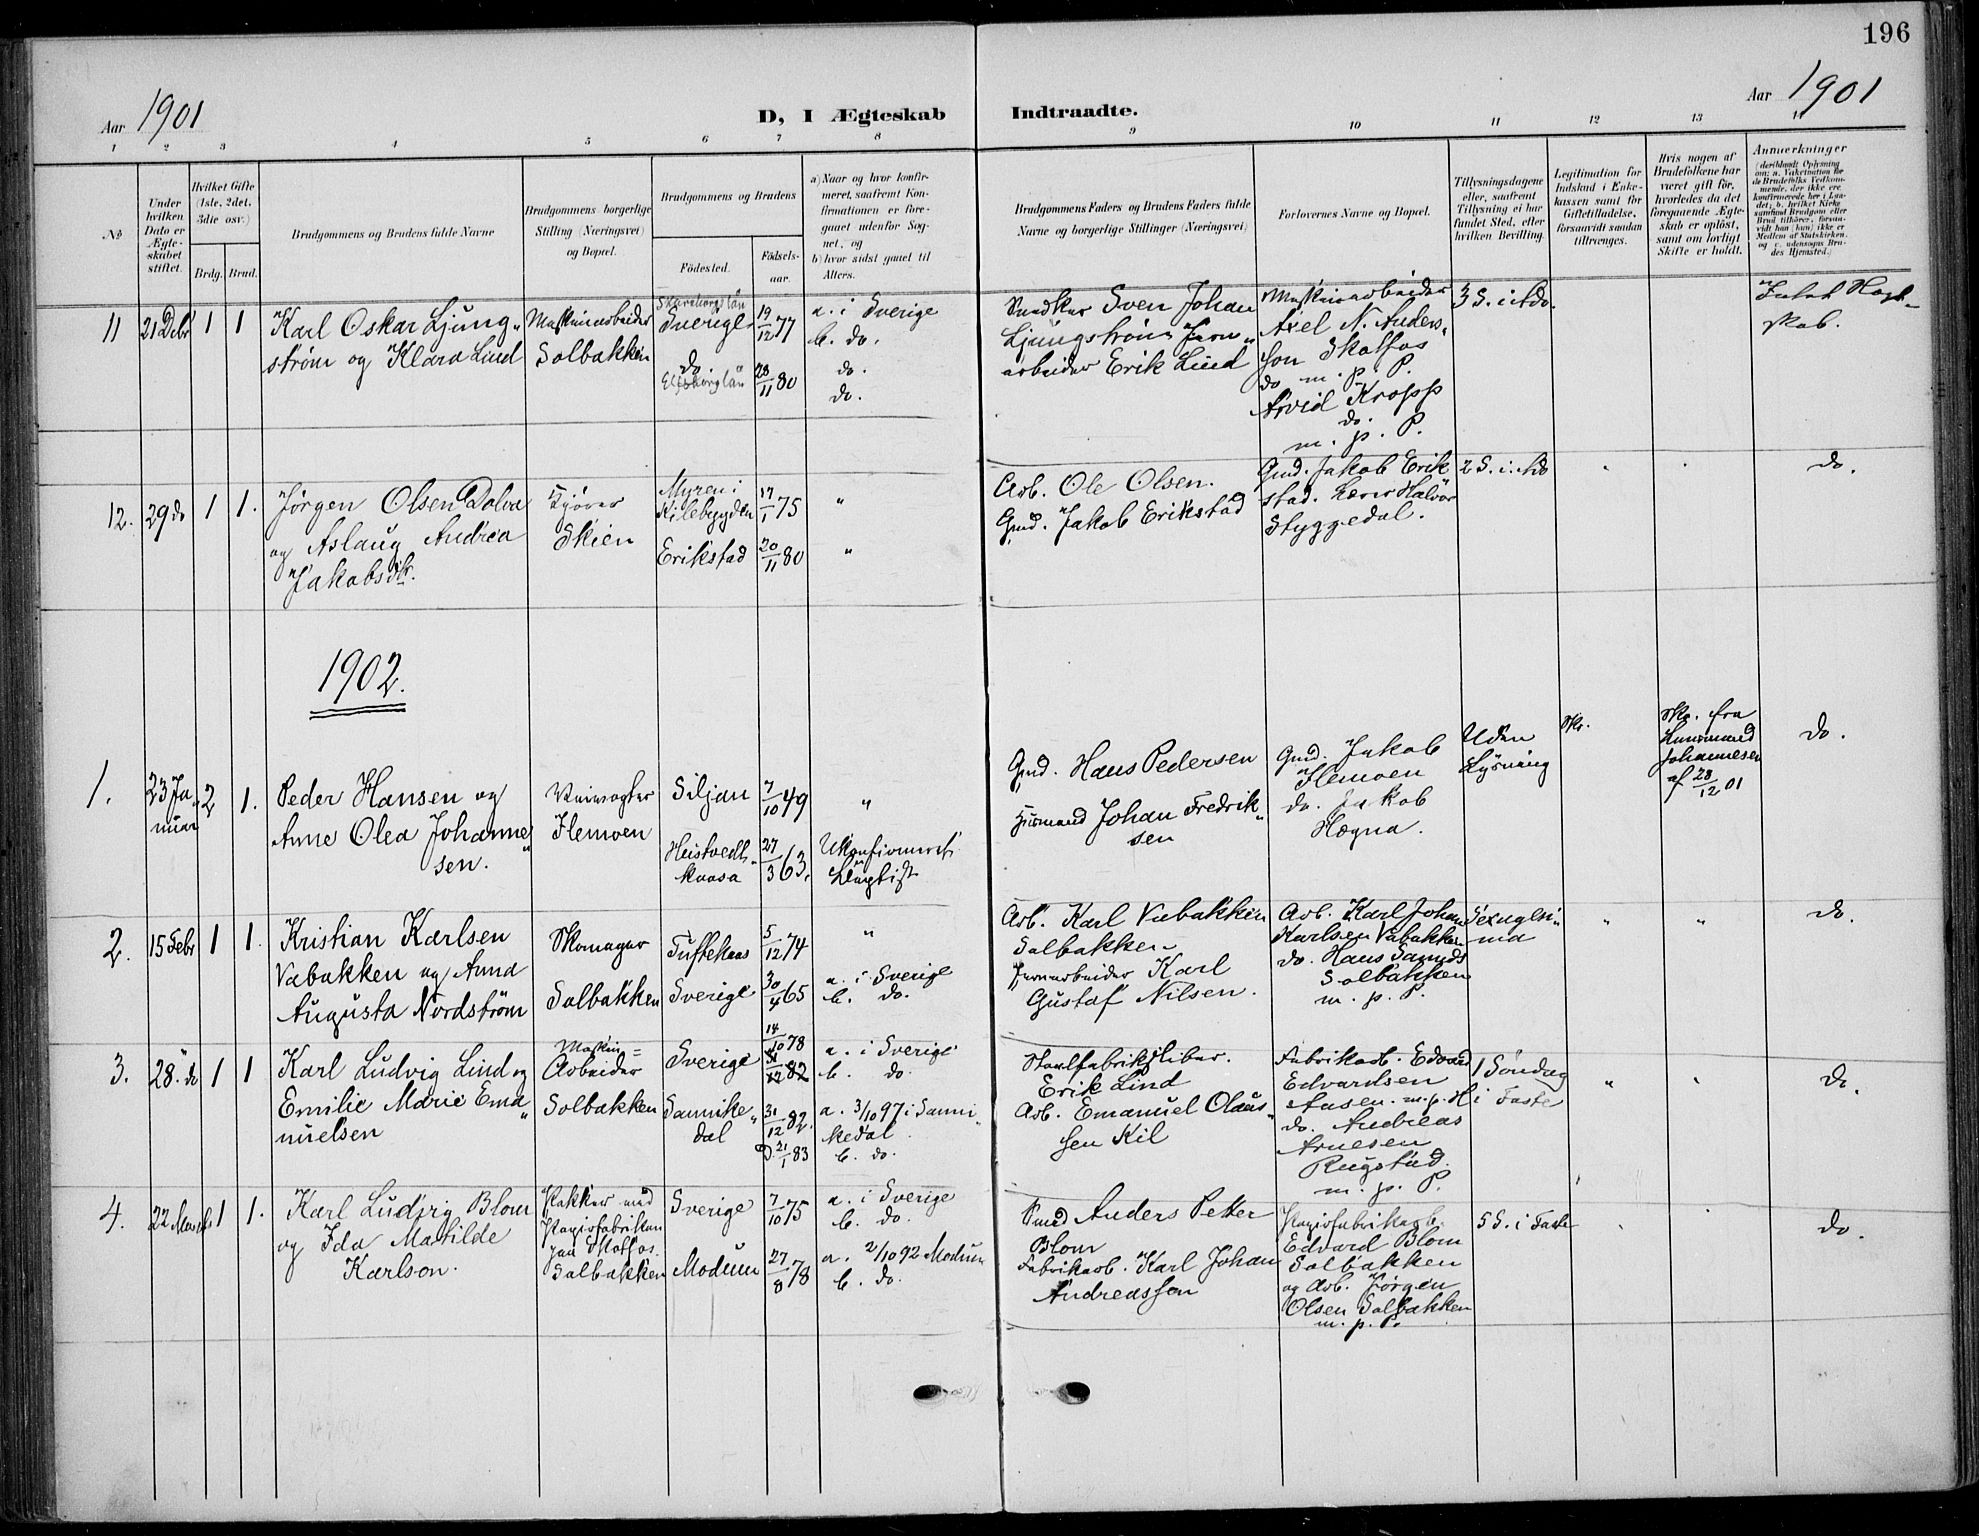 196
Aar 1901
D, I Ægteskab Indtraadte.
Aar 1901
1 2 3 4 5 6 7 8 9 10 11 12 13 14
No
Under hvilken Dato er Ægteskabet stiftet.
Hvilket Gifte (1ste, 2det, 3die osv.)
Brdg. Brud.
Brudgommens og Brudens fulde Navne
Brudgommens borgerlige Stilling (Næringsvei) og Bopæl.
Brudgommens og Brudens
Fødested. Fødselsaar.
a) Naar og hvor konfirmeret, saafremt Konfirmationen er foregaaet udenfor Sognet, og
b) hvor sidst gaaet til Alters.
Brudgommens Faders og Brudens Faders fulde Navne og borgerlige Stillinger (Næringsvei)
Forlovernes Navne og Bopæl.
Tillysningsdagene eller, saafremt Tillysning ei har fundet Sted, efter hvilken Bevilling.
Legitimation for Indskud i Enkekassen samt for Giftetilladelse, forsaavidt saadan tiltrænges.
Hvis nogen af Brudefolkene har været gift før, hvorledes da det foregaaende Ægteskab er opløst, samt om lovligt Skifte er holdt.
Anmerkninger
11 21 Debr 1 1
Karl Oskar Ljung-
strøm og Klara Lind
Maskinarbeider
Solbakken
Skaraborgs län
Sverige
19/12 77
do
Elfsborg län
28/11 80
a. i Sverige
b. do.
do.
do.
Snedker Sven Johan
Ljungstrøm Jern-
arbeider Erik Lind
Maskinarbeider
Axel N. Anders-
son Skotfos
do m. p. P.
Arvid Kropp
do.
m. p. P.
3 S. i Ado.
12. 29 do 1 1.
Jørgen Olsen Dolva
og Aslaug Andrea
Jakobsdtr.
Kjører
Skien
Myren i
Kilebygden
17/1 75
Erikstad
20/11 80
"
"
Arb. Ole Olsen.
Gmd. Jakob Erikstad
Gmd. Jakob Erik
stad. Lærer Halvor
Styggedal.
2 S. i. Ado
do.
1902.
1. 23 Ja-
nuar
2 1.
Peder Hansen og
Anne Olea Johanne-
sen.
Veivogter
Flemoen
Siljan
7/10 49
Heistvedt-
kaasa
27/3 63.
"
Ukonfirmeret
Gmd. Hans Pedersen
Husmand Johan Fredrik-
sen
Gmd. Jakob
Flemoen
do. Jakob
Høgna.
Uden
Lysning
Skr.
Skr. fra
Lensmand
Johannesen
af 28/12 01
do.
2. 15 Febr 1 1.
Kristian Karlsen
Vabakken og Anna
Augusta Nordstrøm
Skomager
Solbakken
Tuftekaas
5/12 74
Sverige
30/4 65
"
a. i Sverige
b. do.
Arb. Karl Vabakken
Solbakken
Jernarbeider Karl
Gustaf Nilsen.
Arb. Karl Johan
Karlsen Vabakken
do. Hans Samuels
Solbakken
m. p. P.
Sexagesi-
ma
"
"
do.
3. 28. do 1 1
Karl Ludvig Lind og
Emilie Marie Ema-
nuelsen
Maskin=
Arbeider
Solbakken
Sverige
14/10 78
31/12 82
Sannike-
dal
31/12 82.
D. 21/1 83
a. i Sverige
b. do.
a. 3/10 97 i Sanni-
kedal.
b. do.
Staalfabriksliber.
Erik Lind
Arb. Emanuel Olaus-
sen Kil
Fabrikarb. Edvard
Edvardsen
Aasen. m. p. H
do. Andreas
Arnesen
Rugstad.
m. p. P.
1 Søndag
i Faste
"
do.
4. 22 Marts 1 1.
Karl Ludvig Blom
og Ida Matilde
Karlson.
Pakker ved
Papirfabriken
paa Skotfos.
Solbakken
Sverige
7/10 75
Modum
27/8 78
a. i Sverige
b. do.
a. 2/10 92 Modum
b. do.
Smed Anders Petter
Blom
Fabrikarb. Karl Johan
Andreassen
Papirfabrikarb.
Edvard Blom
Solbakken
og Arb. Jørgen
Olsen Solbakken
m. p. P.
5 S. i Faste
do.